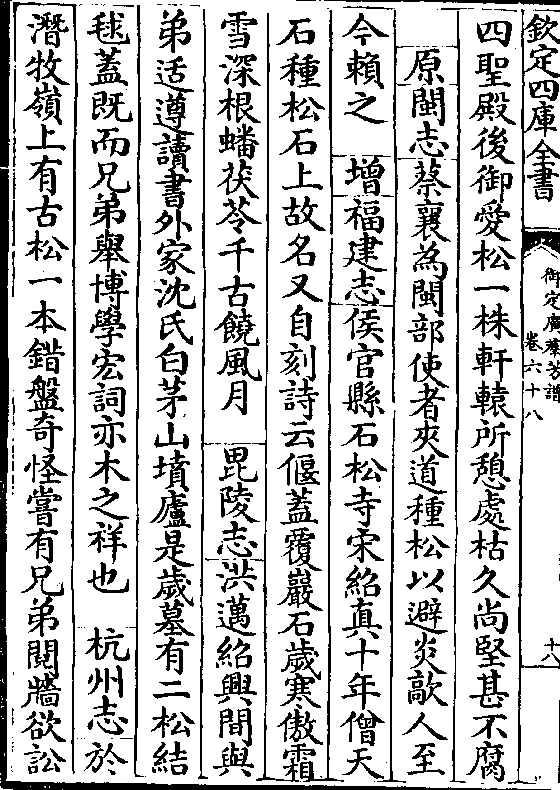 欽定四庫全書
御定廣羣芳譜
卷六十八
十八
四聖殿後御愛松一株軒轅所憩處枯久尚堅甚不腐
原閩志蔡襄為閩部使者夾道種松以避炎歊人至
今賴之 增福建志侯官縣石松寺宋紹真十年僧天
石種松石上故名又自刻詩云偃蓋覆巖石歲寒傲霜
雪深根蟠茯苓千古饒風月 毘陵志洪邁紹興間與
弟适遵讀書外家沈氏白茅山墳廬是歲墓有二松結
毬蓋既而兄弟舉博學宏詞亦木之祥也 杭州志於
潛牧嶺上有古松一本錯盤奇怪嘗有兄弟鬩牆欲訟